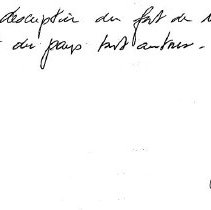 description du fort de
du pays tout autour.